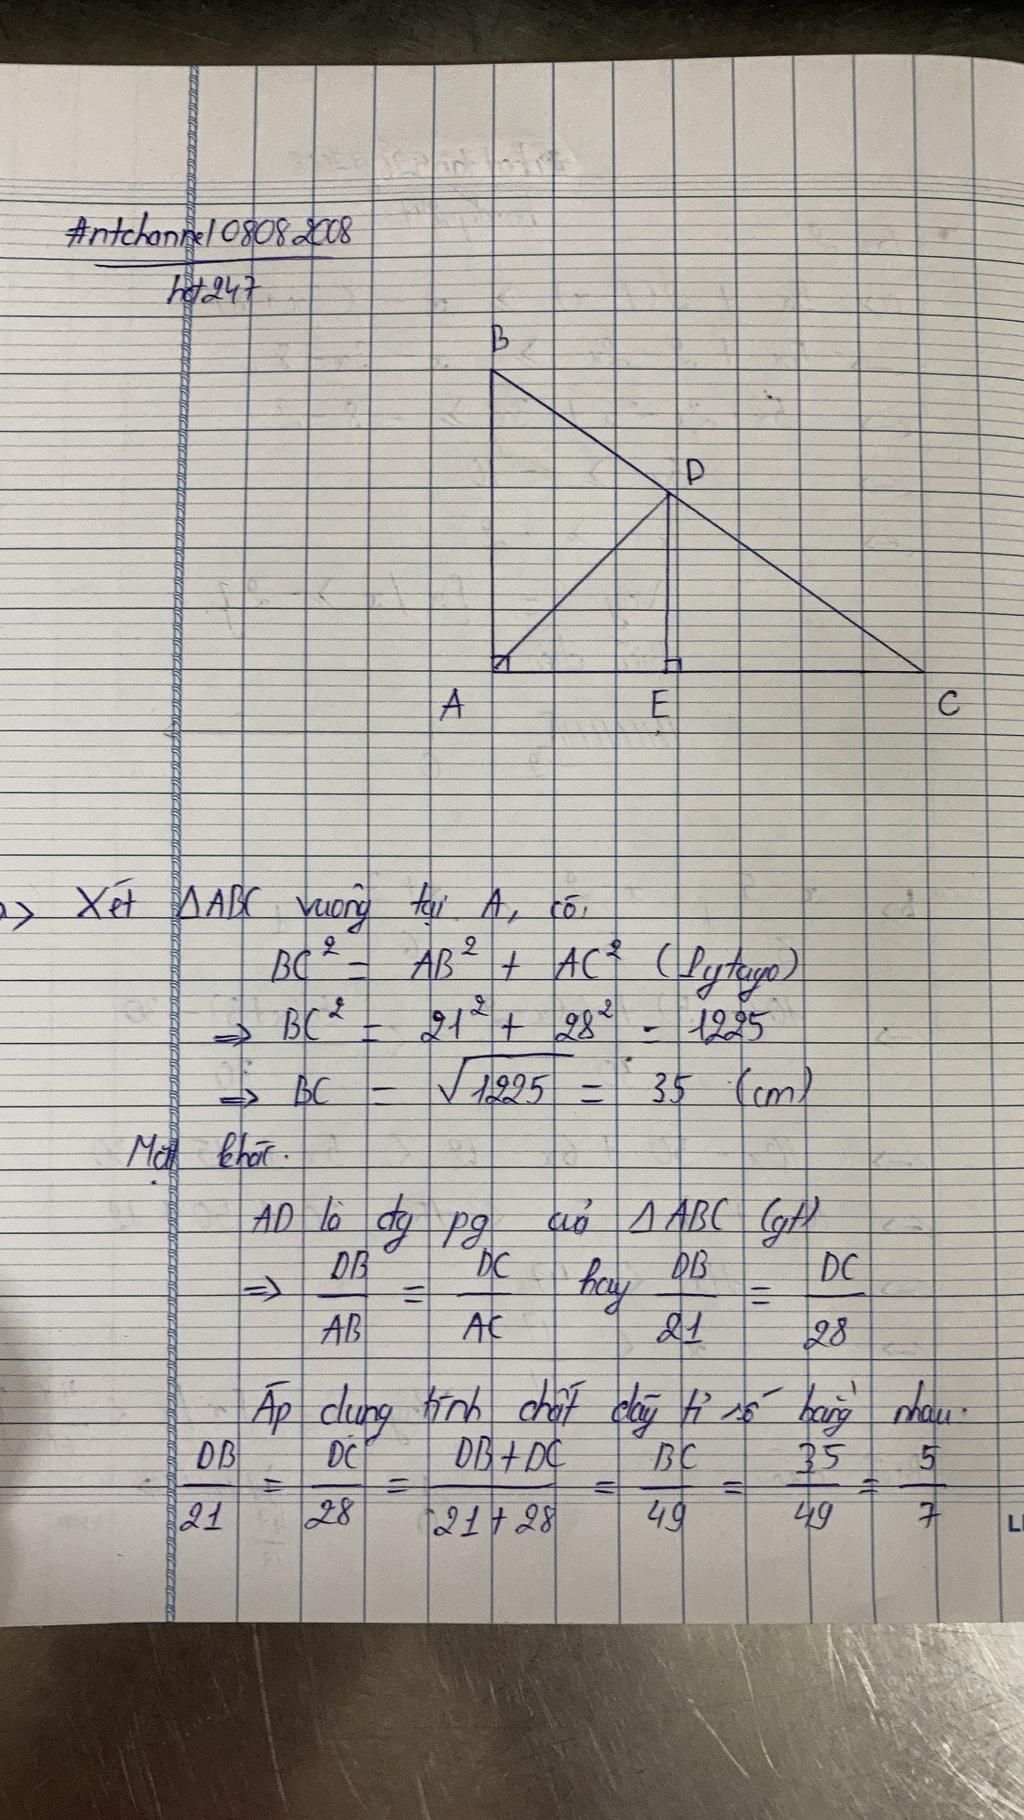 #ntchannel08082008
hd247
B
D
A
E
C
a> Xét ΔABC vuông tại A, có:
BC² = AB² + AC² (Pytago)
=> BC² = 21² + 28² = 1225
=> BC = √1225 = 35 (cm)
Mặt khác:
AD là đg pg củả ΔABC (gt)
=> DB/AB = DC/AC hay DB/21 = DC/28
Áp dụng tính chất dãy tỉ số bằng nhau:
DB/21 = DC/28 = DB+DC/21+28 = BC/49 = 35/49 = 5/7